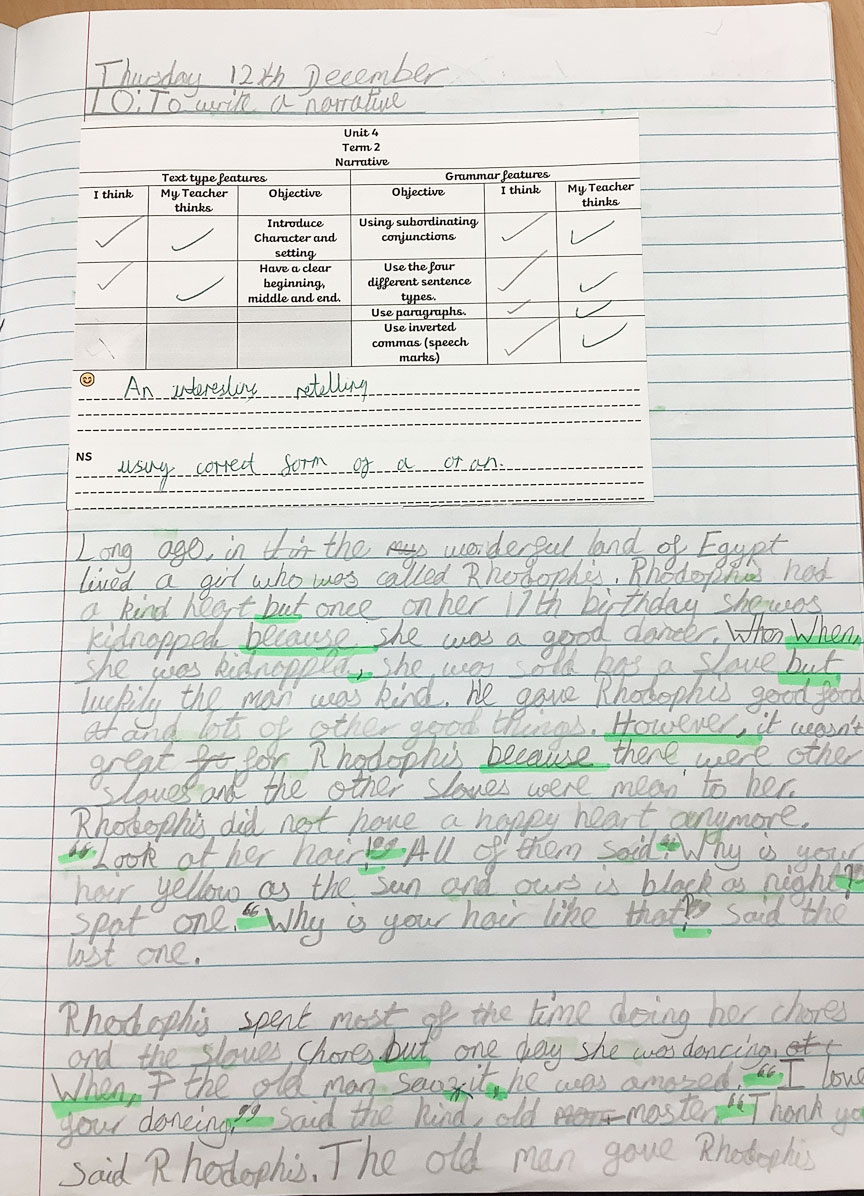 Thursday 12th December
LO: To write a narrative
Unit 4
Term 2
Narrative
Text type features Grammar features
I think My Teacher thinks Objective Objective I think My Teacher thinks
Introduce Character and setting Using subordinating conjunctions
Have a clear beginning, middle and end. Use the four different sentence types.
Use paragraphs.
Use inverted commas (speech marks)
An interesting retelling
NS using correct form of a or an.
Long ago, in the wonderful land of Egypt
lived a girl who was called Rhodophis. Rhodophis had
a kind heart but once on her 17th birthday she was
kidnapped because she was a good dancer. When When,
she was kidnapped, she was sold has a slave but
luckily the man was kind. He gave Rhodophis good food
and lots of other good things. However, it wasn't
great for Rhodophis because there were other
slaves and the other slaves were mean to her.
Rhodophis did not have a happy heart anymore.
"Look at her hair!" All of them said. "Why is your
hair yellow as the sun and ours is black as night?"
spat one. "Why is your hair like that?" said the
last one.
Rhodophis spent most of the time doing her chores
and the slaves chores but one day she was dancing.
When, the old man saw it, he was amazed. "I love
your dancing." Said the kind, old master. "Thank you
said Rhodophis. The old man gave Rhodophis